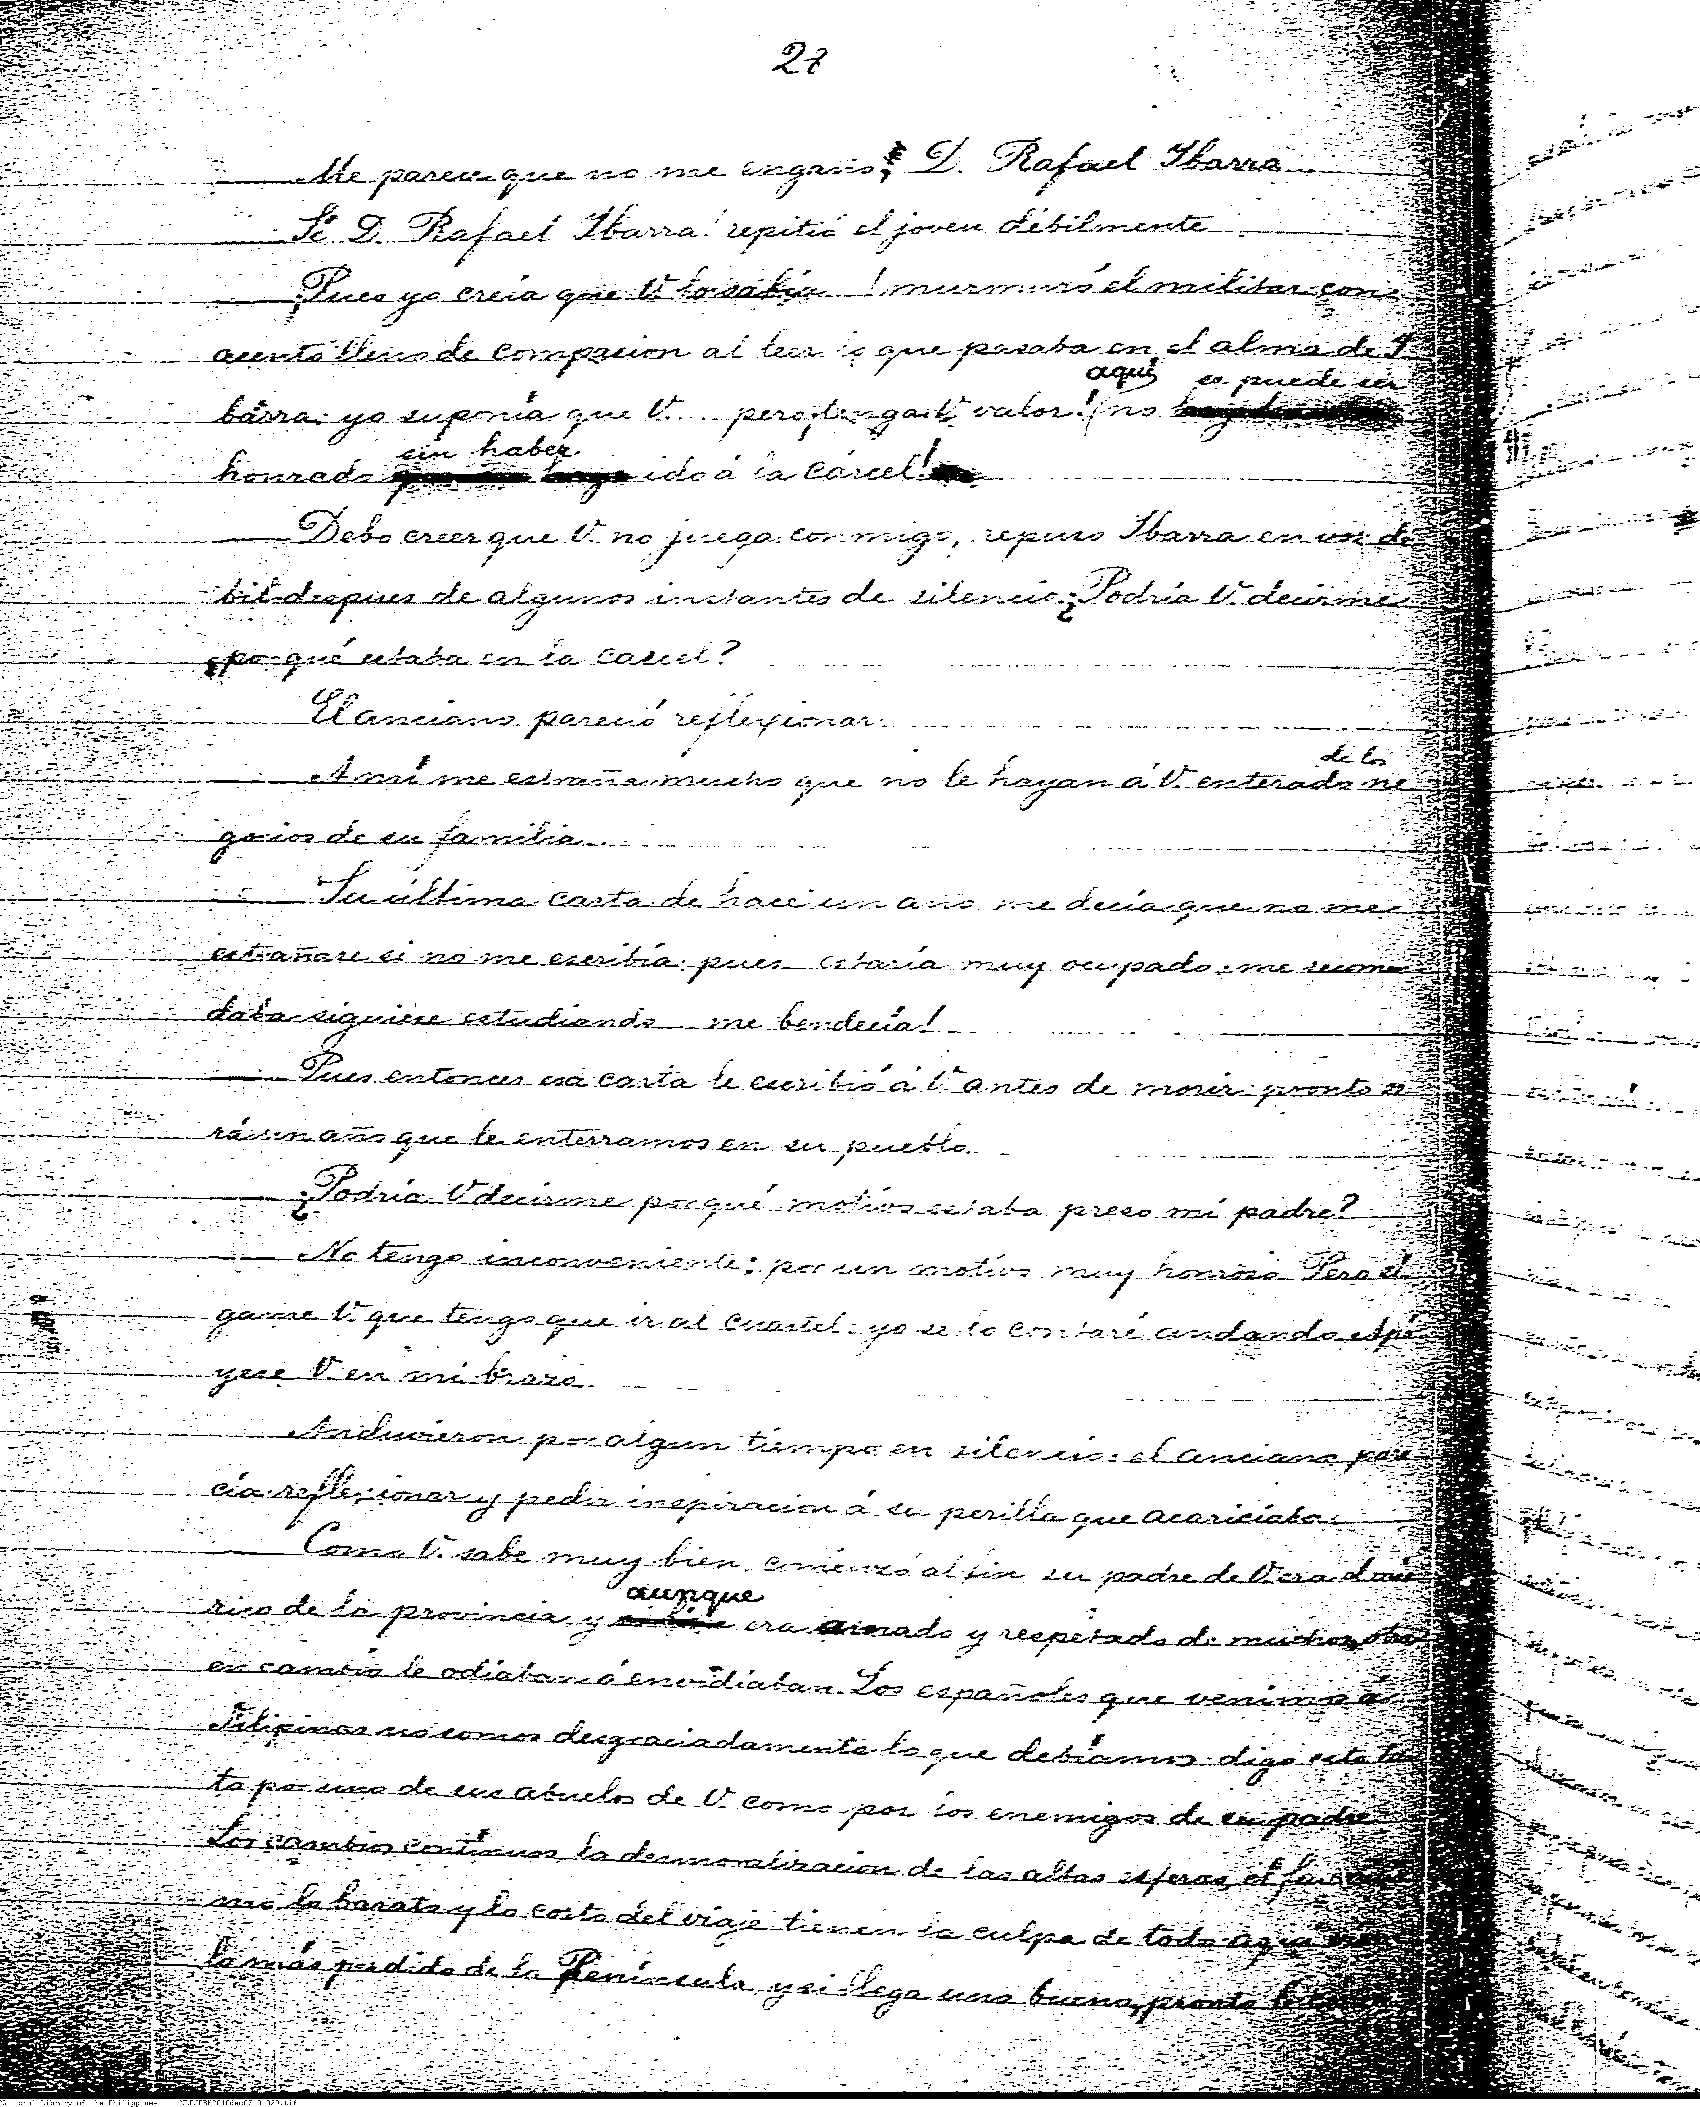 27
Me parece que no me engaño; D. Rafael Ibarra
Sí D. Rafael Ibarra! repitió el joven débilmente
Pues yo creía que V. lo sabía! murmuró el militar con
acento lleno de compasion al leer lo que pasaba en el alma de I
barra: yo suponía que V... pero tenga V. valor! aquí no es puede ser
honrado sin haber ido á la cárcel!
Debo creer que V. no juega conmigo, repuso Ibarra en voz dé
bil despues de algunos instantes de silencio. ¿Podría V. decirme
por qué estaba en la cárcel?
El anciano pareció reflexionar.
A mí me estraña mucho que no le hayan á V. enterado de los ne
gocios de su familia.
Su última carta de hace un año me decía que no me
estrañare si no me escribía, pues estaría muy ocupado: me recome
daba siguiese estudiando me bendecía!
Pues entonces esa carta le escribió á V. antes de morir: pronto se
rá un año que le enterramos en su pueblo.
¿Podría V. decirme por qué motivo estaba preso mi padre?
No tengo inconveniente: por un motivo muy honroso. Pero sí
game V. que tengo que ir al cuartel: yo se lo contaré andando apó
yese V. en mi brazo.
Anduvieron por algun tiempo en silencio: el anciano pare
cía reflexionar y pedir inspiracion á su perilla que acariciaba.
Como V. sabe muy bien, comenzó al fin su padre de V. era el más
rico de la provincia, y aunque era amado y respetado de muchos, otros
en cambio le odiaban ó envidiaban. Los españoles que venimos á
Filipinas no somos desgraciadamente lo que debíamos: digo esto tan
to por uno de sus abuelos de V. como por los enemigos de su padre
Los cambios contínuos, la desmoralizacion de las altas esferas, el favori
mo lo barato y lo corto del viaje tienen la culpa de todo: aquí
lo más perdido de la Península, y si llega uno bueno, pronto